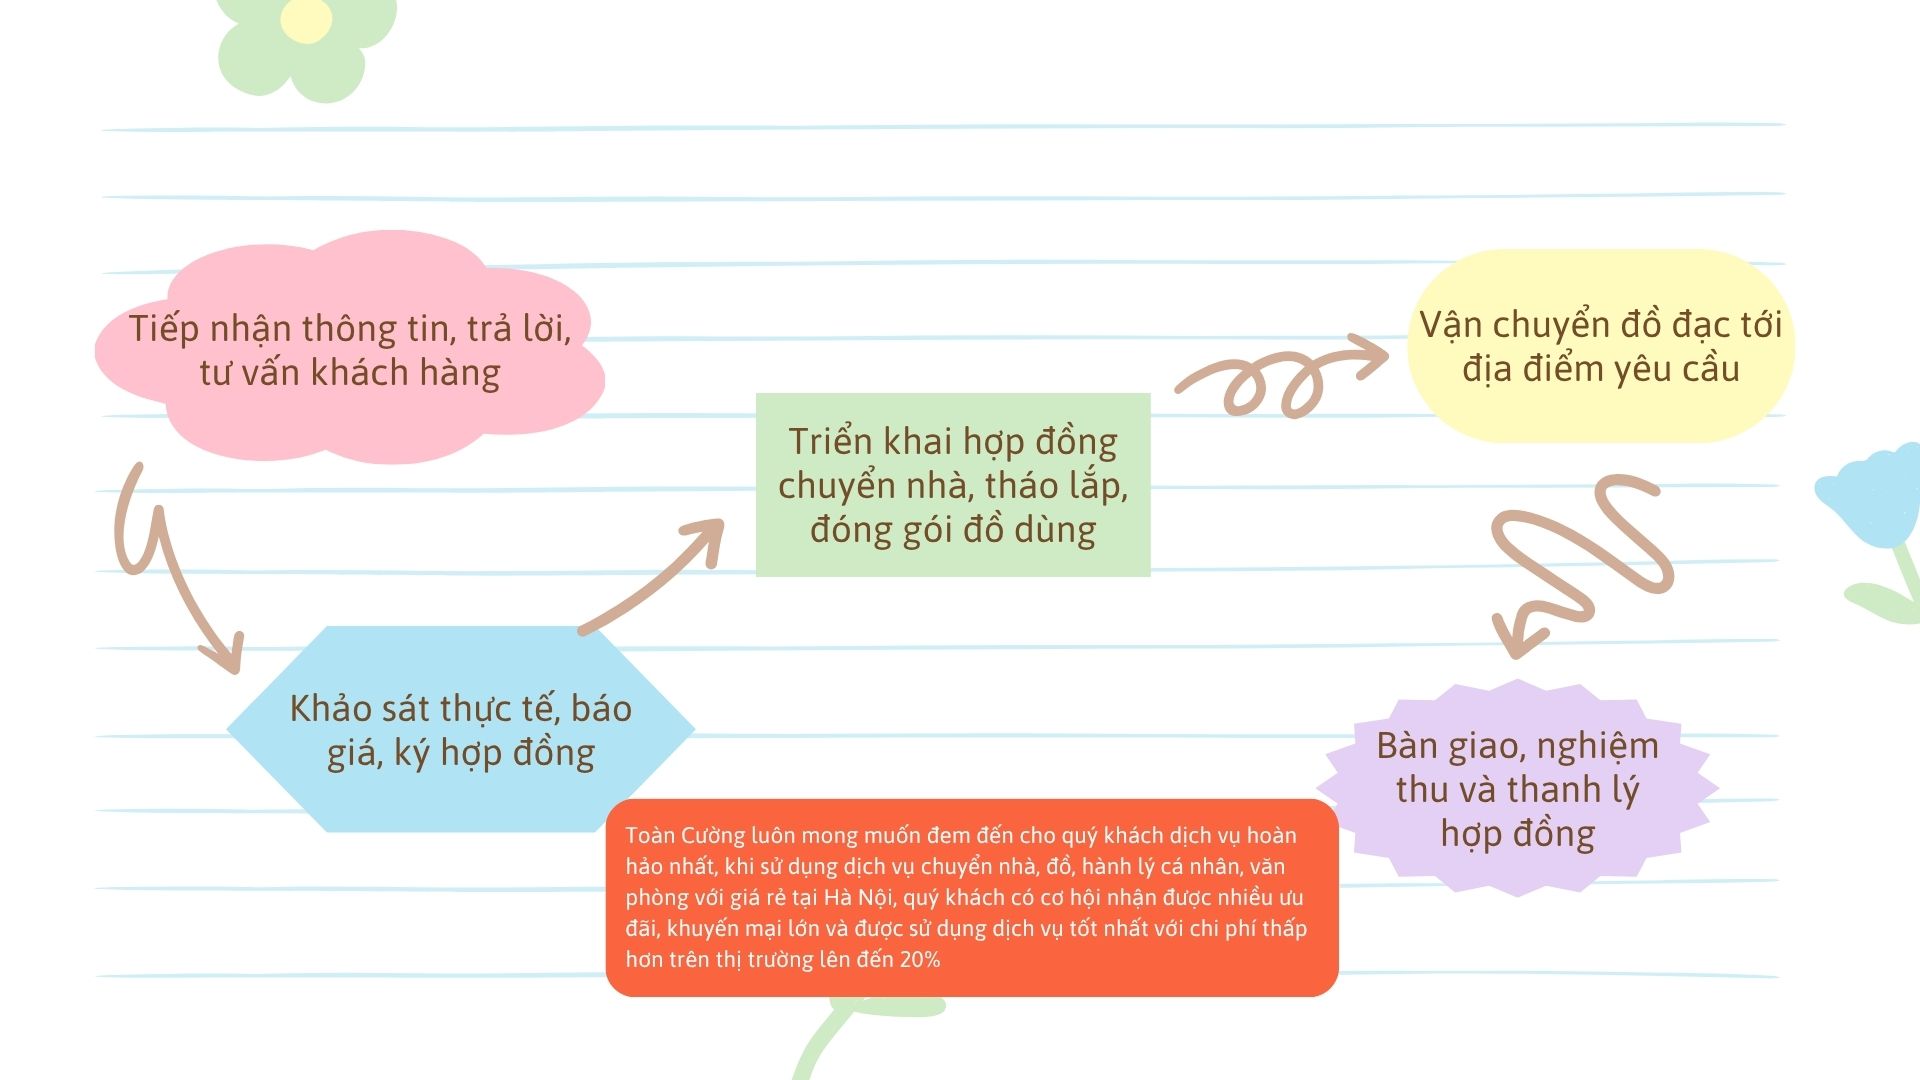 Tiếp nhận thông tin, trả lời,
tư vấn khách hàng
Khảo sát thực tế, báo
giá, ký hợp đồng
Triển khai hợp đồng
chuyển nhà, tháo lắp,
đóng gói đồ dùng
Vận chuyển đồ đạc tới
địa điểm yêu cầu
Bàn giao, nghiệm
thu và thanh lý
hợp đồng
Toàn Cường luôn mong muốn đem đến cho quý khách dịch vụ hoàn
hảo nhất, khi sử dụng dịch vụ chuyển nhà, đồ, hành lý cá nhân, văn
phòng với giá rẻ tại Hà Nội, quý khách có cơ hội nhận được nhiều ưu
đãi, khuyến mại lớn và được sử dụng dịch vụ tốt nhất với chi phí thấp
hơn trên thị trường lên đến 20%